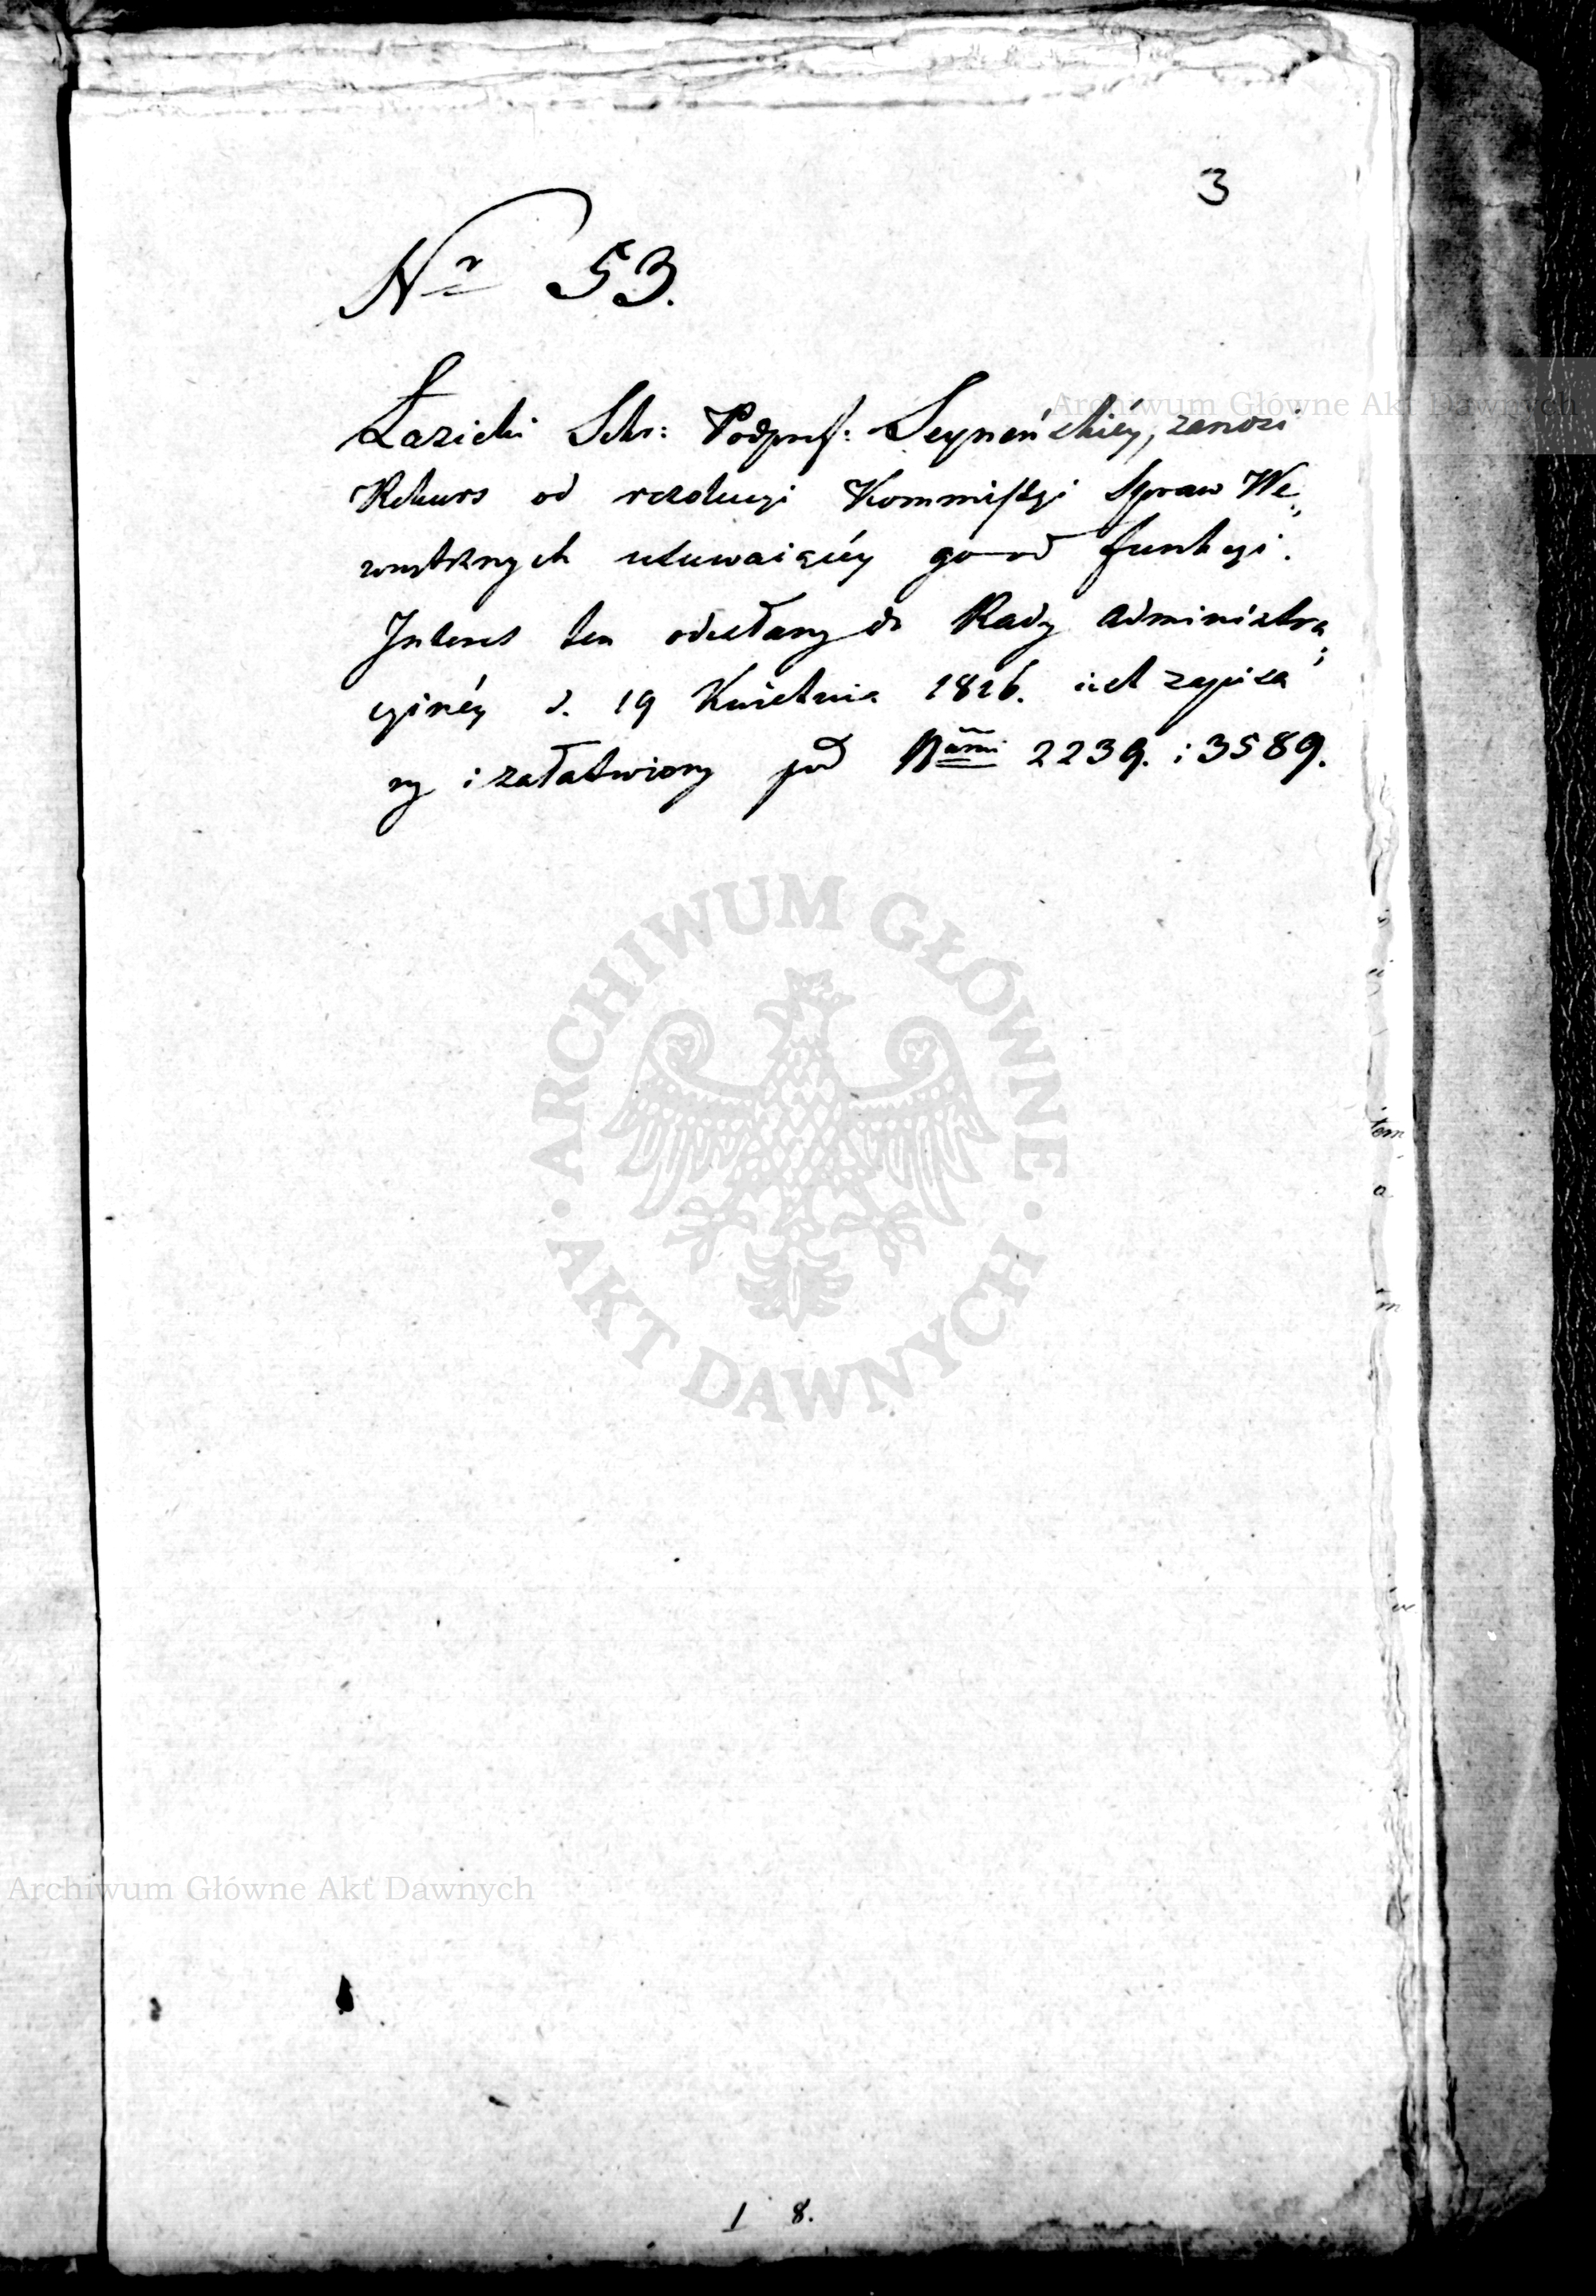 3
Nr 53.
Łazicki Sekr: Podpref: Seyneńskiéy, zanosi
Rekurs od rezolucyi Kommissyi Spraw We„
wnętrznych usuwaiącéy go od funkcyi.
Interes ten odesłany do Rady Administra„
cyinéy d. 19 Kwietnia 1816. iest zapisa
ny i załatwiony pod Nrami 2239. i 3589.
ARCHIWUM GŁÓWNE
AKT DAWNYCH
Archiwum Główne Akt Dawnych
Archiwum Główne Akt Dawnych
1 8.